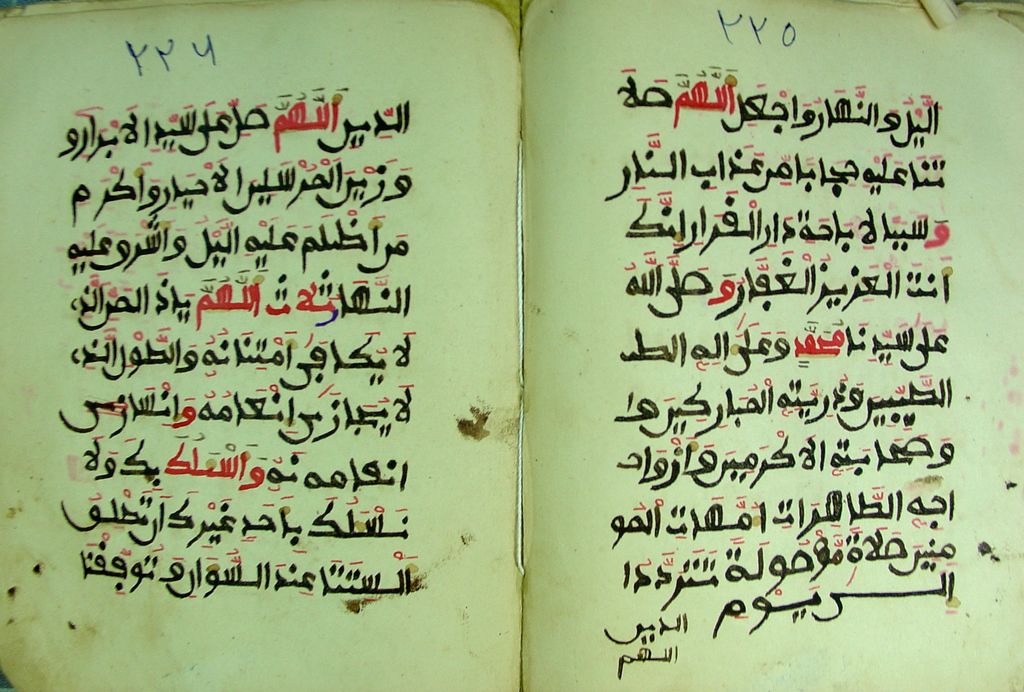 ٢٢٥
اليل والنهار واجعل اللهم صلا
تنا عليه حجابا من عذاب النار
وسببا لاباحة دار القرار انك
انت العزيز الغفار وصلى الله
على سيدنا محمد وعلى اله الط
الطيبين وذريته المباركين وا
وصحابته الاكرمين وازوا
اجه الطاهرات امهات المو
منين صلاة موصولة تتردد ا
الى يوم
الدين
اللهم
٢٢٦
الدين اللهم صل على سيد الابرار و
وزين المرسلين الاخيار واكرم
من اظلم عليه اليل واشرق عليه
النهار اللهم ياذا المن الذي
لا يكافى امتنانه والطول الذي
لا يجازى انعامه
انعامه نه واسلك بك ولا
نسلك باحد غيرك ان تطلق
السنتنا عند السوال وتوفقنا